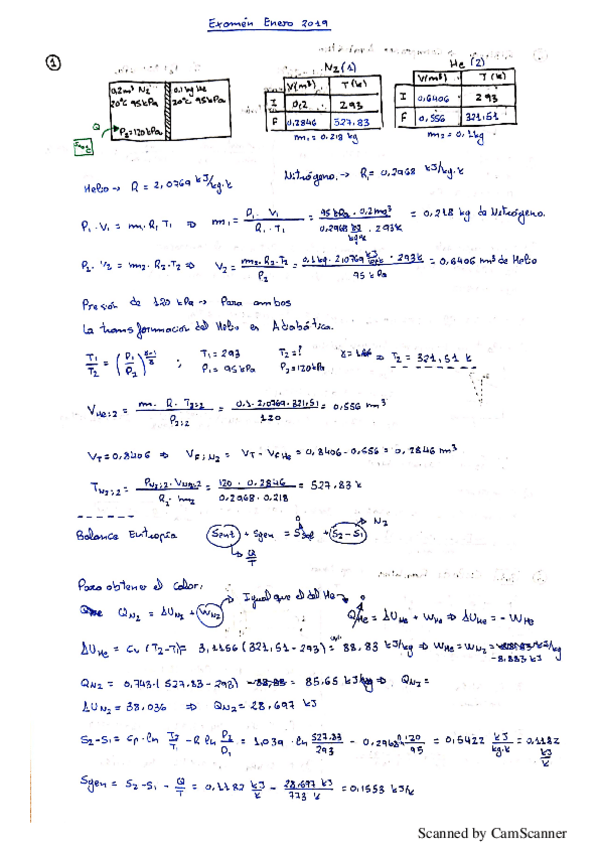 Examén Enero 2019
1
N2 (1)
He (2)
0,2 m³ N2
20ºC 95 kPa
0.1 kg He
20ºC 95 kPa
Q
P2=120 kPa
V(m³) T(k)
I 0,2 293
F 0,2846 527.83
m1 = 0.218 kg
V(m³) T(k)
I 0,6406 293
F 0,556 321,51
m2 = 0,1 kg
Helio → R = 2,0769 kJ/kg·k
Nitrógeno → R1 = 0,2968 kJ/kg·k
P1 · V1 = m1 · R1 T1 ⇒ m1 = P1 · V1 / R1 · T1 = 95 kPa · 0,2 m³ / 0,2968 kJ/kg·k · 293k = 0,218 kg de Nitrógeno.
P2 · V2 = m2 · R2 · T2 ⇒ V2 = m2 · R2 · T2 / P2 = 0,1 kg · 2,0769 kJ/kg·k · 293k / 95 kPa = 0,6406 m³ de Helio
Presión de 120 kPa → Para ambos
La transformación del Helio es Adiabática.
T1/T2 = (P1/P2)^(γ-1/γ) ; T1 = 293 T2 = ? ⇒ T2 = 321,51 k
P1 = 95 kPa P2 = 120 kPa
VHe;2 = m · R · T2;2 / P2;2 = 0.1 · 2,0769 · 321.51 / 120 = 0,556 m³
VT = 0,8406 ⇒ VF;N2 = VT - VFHe = 0,8406 - 0,556 = 0,2846 m³
TN2;2 = PN2;2 · VN2;2 / R1 · m2 = 120 · 0,2846 / 0,2968 · 0.218 = 527.83 k
Balance Entropía Sent + Sgen = Ssal + S2-S1 → N2
0
Q/T
Para obtener el calor,
QN2 = ΔUN2 + WN2 → Igual que el del He → QHe = ΔUHe + WHe ⇒ ΔUHe = - WHe
0
ΔUHe = Cv (T2-T1) = 3,1156 (321,51 - 293) = 88,83 kJ/kg ⇒ WHe = WN2 =
-8.883 kJ
QN2 = 0.743 · (527.83 - 293) = 85,65 kJ/kg ⇒ QN2 =
ΔUN2 = 38,036 ⇒ QN2 = 28,697 kJ
S2-S1 = Cp · ln T2/T1 - R ln P2/P1 = 1,039 · ln 527.83/293 - 0,2968 ln 0.120/95 = 0,5422 kJ/kg·k = 0,1182 kJ/k
Sgen = S2-S1 - Q/T = 0,1182 kJ/k - 28.697 kJ/773 k = 0,1553 kJ/k
Scanned by CamScanner